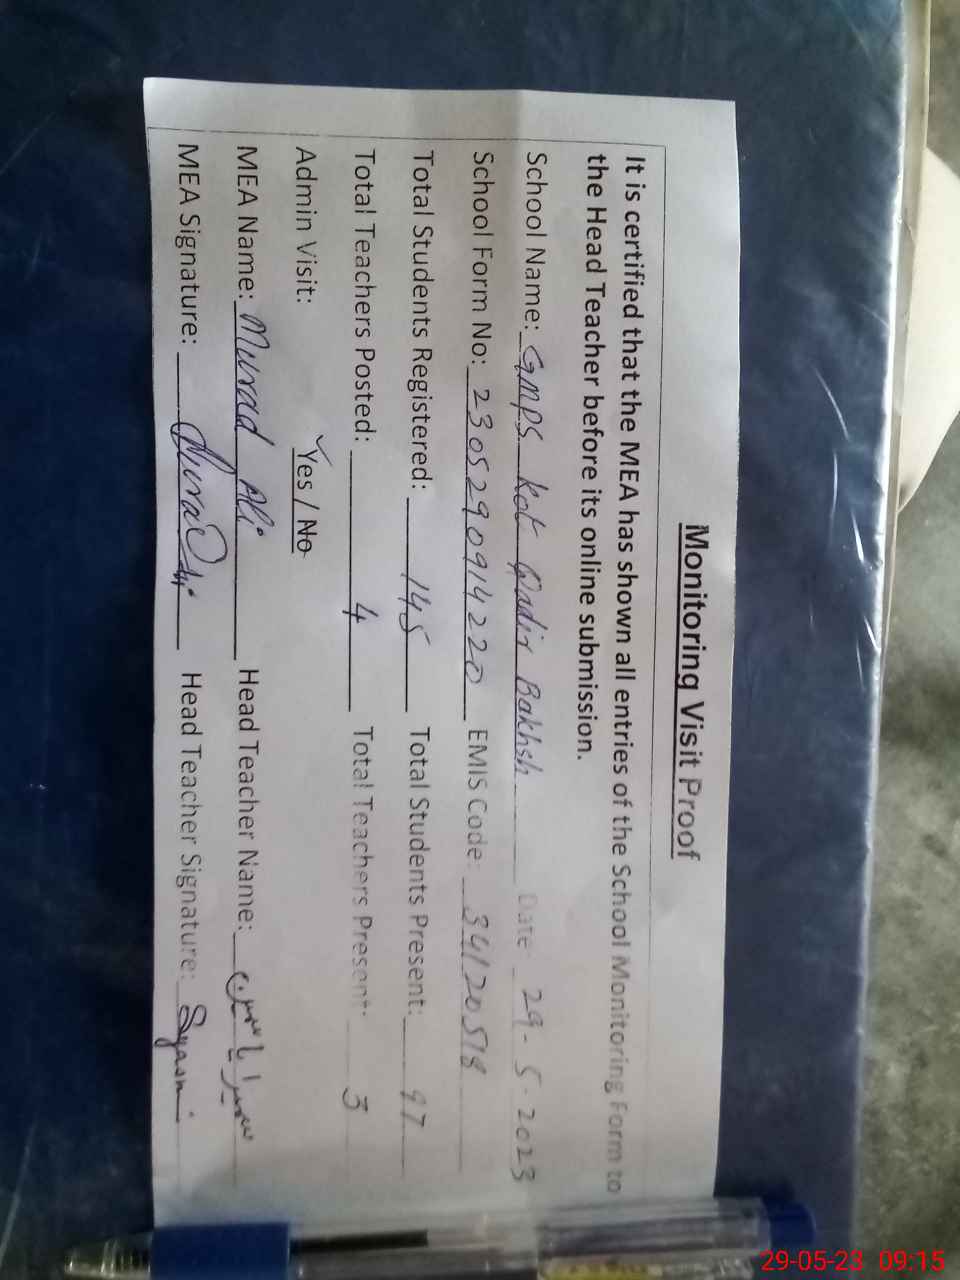 Monitoring Visit Proof
It is certified that the MEA has shown all entries of the School Monitoring Form to
the Head Teacher before its online submission.
School Name: GMPS Kot Qadir Bakhsh Date 29-5-2023
School Form No: 2305290914220 EMIS Code: 34120518
Total Students Registered: 145 Total Students Present: 97
Total Teachers Posted: 4 Total Teachers Present: 3
Admin Visit: Yes / No
MEA Name: Murad Ali Head Teacher Name:
MEA Signature: Head Teacher Signature:
29-05-23 09:15